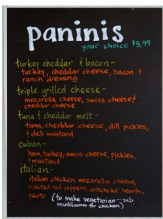 paninis
your choice $5.99
turkey cheddar & bacon -
turkey, cheddar cheese, bacon &
ranch dressing
triple grilled cheese -
mozzarella cheese, swiss cheese &
cheddar cheese
tuna & cheddar melt -
tuna, cheddar cheese, dill pickles,
& deli mustard
cuban -
ham, turkey, swiss cheese, pickles,
& mustard
italian -
italian chicken mozzarella cheese,
roasted red peppers, artichoke hearts,
(to make vegetarian - sub
mushrooms for chicken)